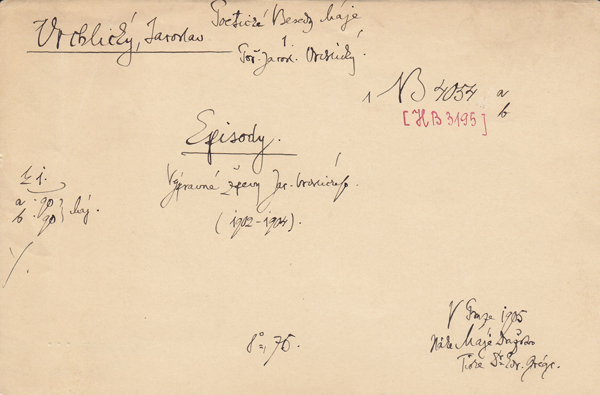 Vrchlický, Jaroslav
Poetické Besedy Máje
1.
Poř. Jarosl. Vrchlický.
1 NB 4054 a
b
[HB 3195]
Episody.
Výpravné zpěvy Jar. Vrchlického
(1902-1904).
1 j.
a 90
b 90 } Máj.
8°, 76.
V Praze 1905
Nákl. Máje Družstvo
Tiske Dr. Edv. Grégr.